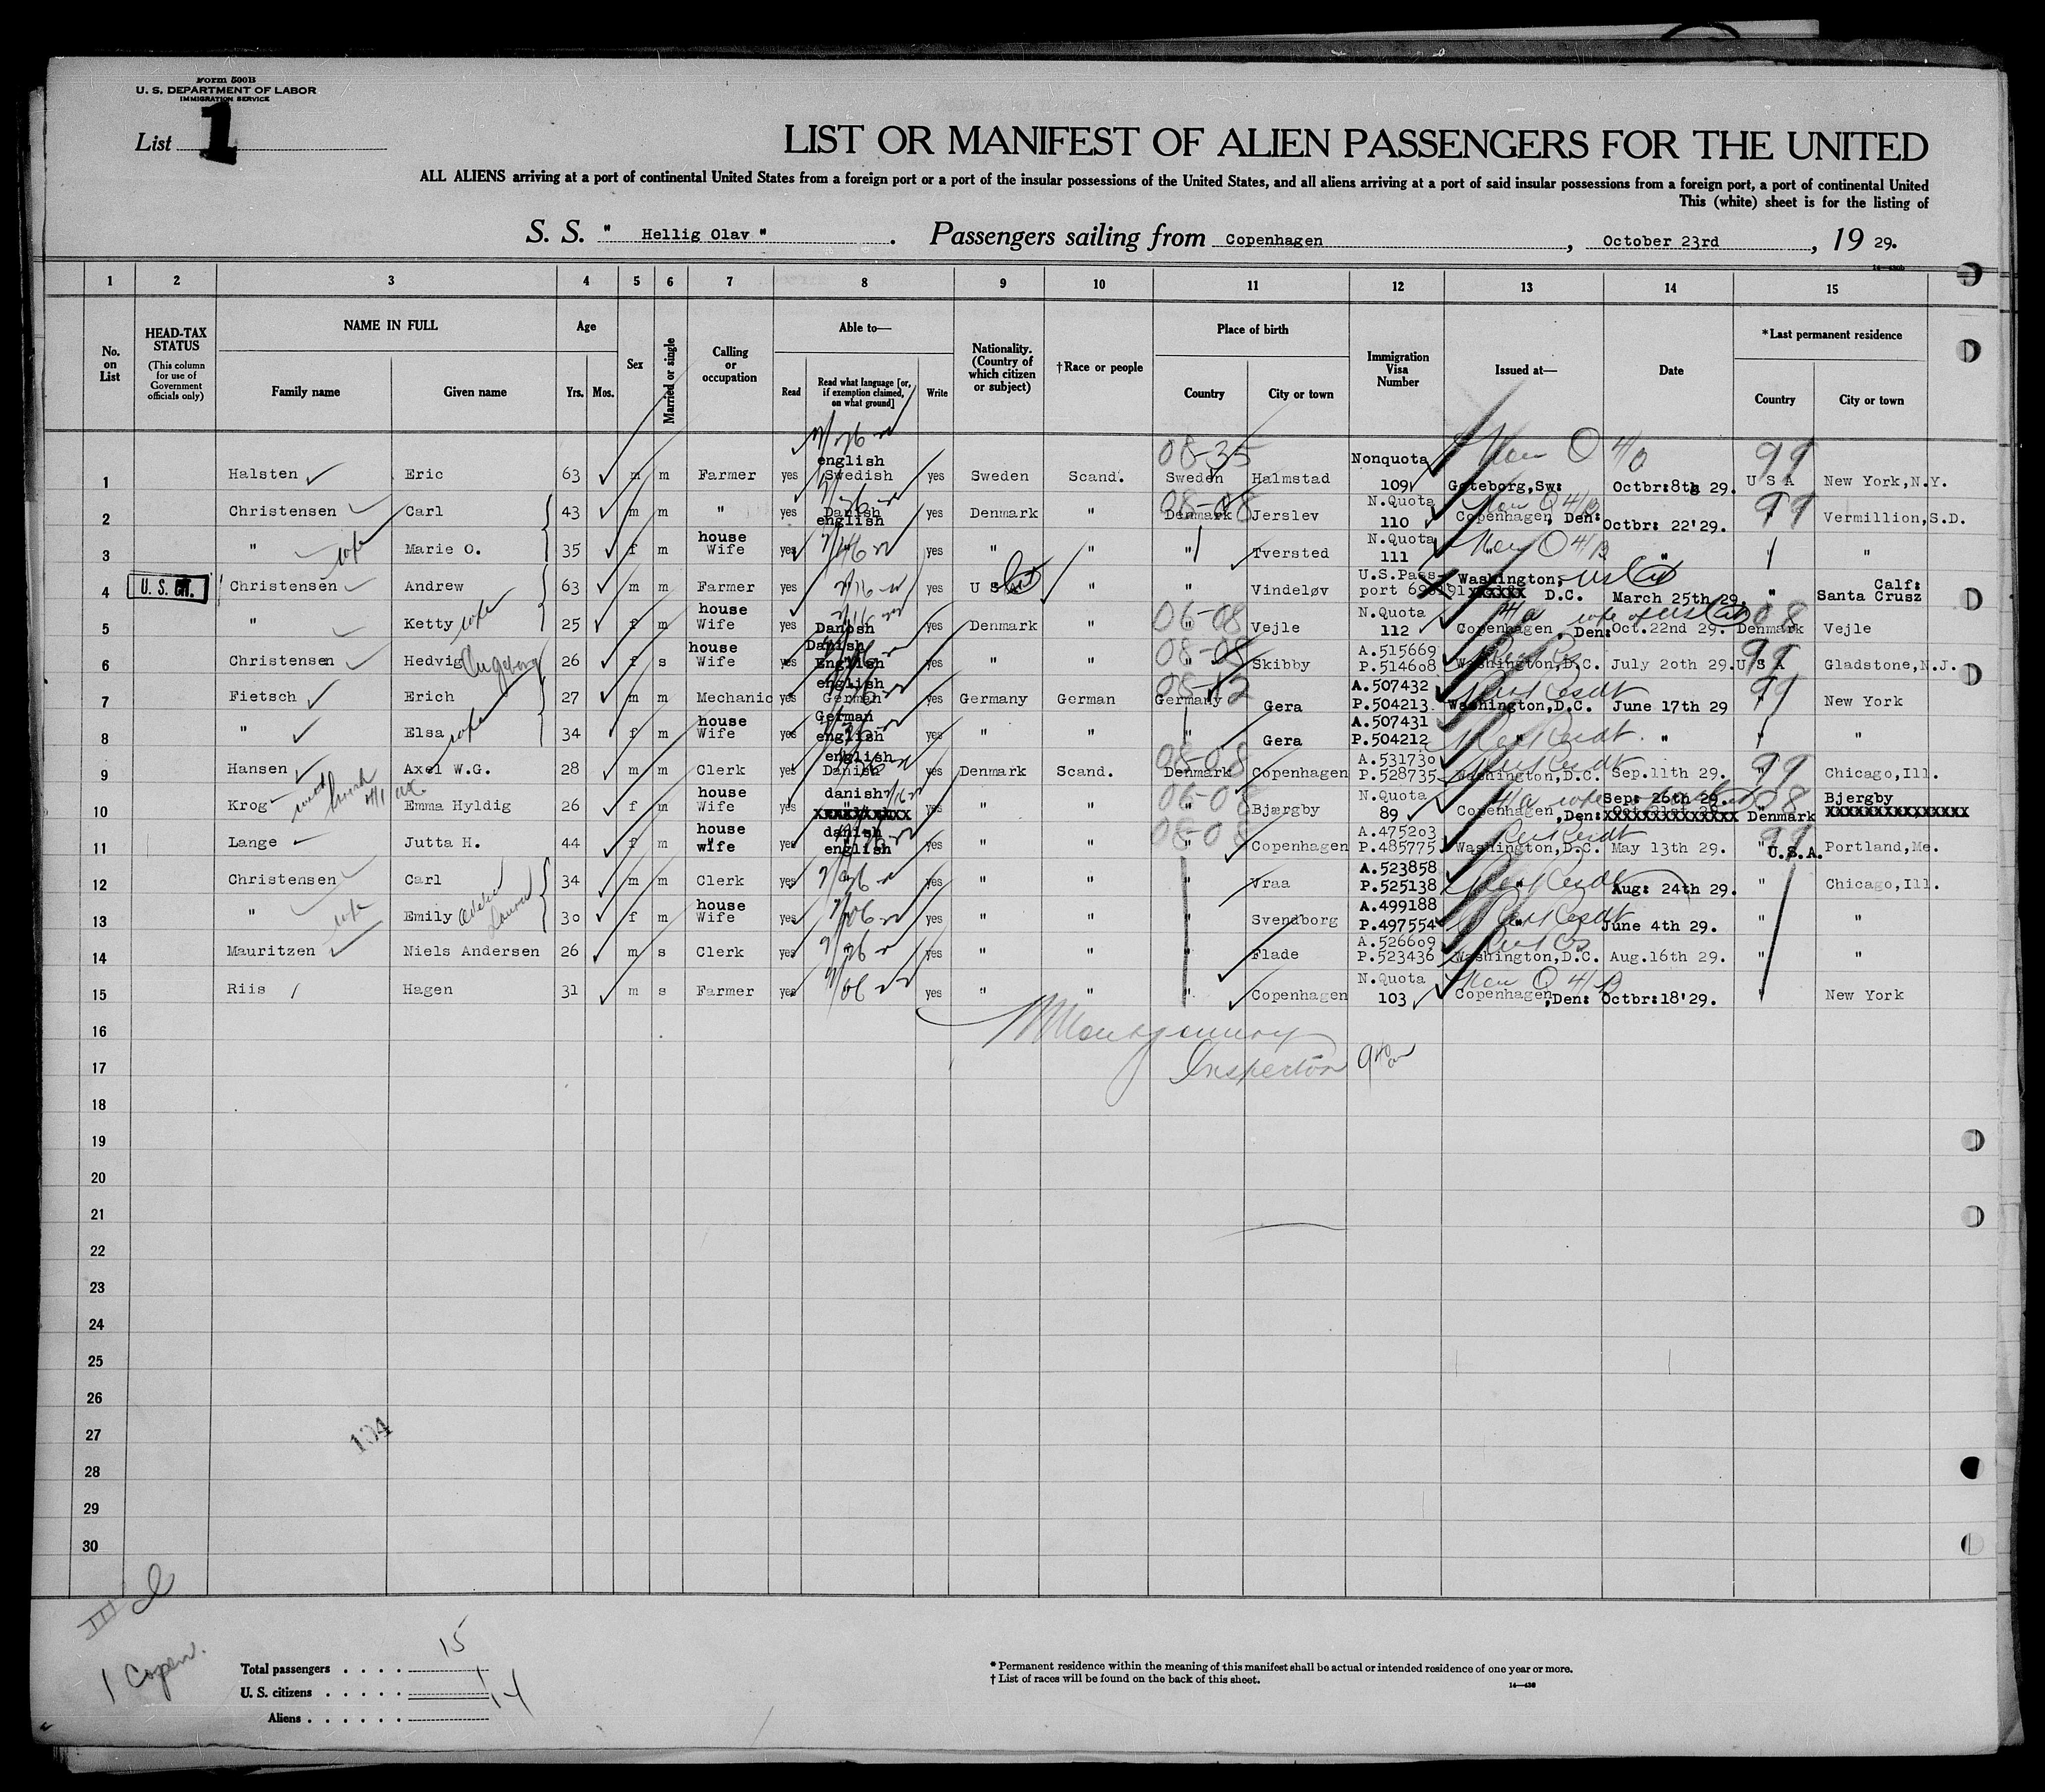 Form 500B
U. S. DEPARTMENT OF LABOR
IMMIGRATION SERVICE
List 1
LIST OR MANIFEST OF ALIEN PASSENGERS FOR THE UNITED
ALL ALIENS arriving at a port of continental United States from a foreign port or a port of the insular possessions of the United States, and all aliens arriving at a port of said insular possessions from a foreign port, a port of continental United
This (white) sheet is for the listing of
S. S. " Hellig Olav " . Passengers sailing from Copenhagen , October 23rd , 19 29.
1 2 3 4 5 6 7 8 9 10 11 12 13 14 15
No. on List
HEAD-TAX STATUS
(This column for use of Government officials only)
NAME IN FULL
Family name Given name
Age
Yrs. Mos.
Sex
Married or single
Calling or occupation
Able to—
Read
Read what language [or, if exemption claimed, on what ground]
Write
Nationality. (Country of which citizen or subject)
†Race or people
Place of birth
Country City or town
Immigration Visa Number
Issued at—
Date
*Last permanent residence
Country City or town
08-35 99
1 Halsten Eric 63 m m Farmer yes english Swedish yes Sweden Scand. Sweden Halmstad Nonquota 109 Goteborg,Sw: Octbr:8th 29. U S A New York,N.Y.
2 Christensen Carl 43 m m " yes Danish english yes Denmark " 08-08 Denmark Jerslev N.Quota 110 Copenhagen, Den: Octbr: 22'29. 99 " Vermillion,S.D.
3 " wife Marie O. 35 f m house Wife yes yes " " " Tversted N.Quota 111 " " "
4 U. S. Christensen Andrew 63 m m Farmer yes yes U S A " " Vindeløv U.S.Pass- port Washington, D.C. March 25th 29. " Calf: Santa Crusz
5 " Ketty wife 25 f m house Wife yes Danosh yes Denmark 06-08 " Vejle N.Quota 112 Copenhagen, Den: wife of Oct.22nd 29. 08 Denmark Vejle
6 Christensen Hedvig Ingeborg 26 f s house Wife yes Danish English yes " " 08-08 " Skibby A.515669 P.514608 Washington,D.C. July 20th 29. 99 U S A Gladstone,N.J.
7 Fietsch Erich 27 m m Mechanic yes english German yes Germany German 08-12 Germany Gera A.507432 P.504213 Washington,D.C. June 17th 29 99 " New York
8 " wife Elsa 34 f m house Wife yes German english yes " " " Gera A.507431 P.504212 " " " "
9 Hansen Axel W.G. 28 m m Clerk yes english Danish yes Denmark Scand. 08-08 Denmark Copenhagen A.531730 P.528735 Washington,D.C. Sep.11th 29. 99 " Chicago,Ill.
10 Krog Emma Hyldig 26 f m house Wife yes danish yes " " 06-08 " Bjærgby N.Quota 89 Copenhagen,Den: Sep: 26th 29. 08 Denmark Bjergby
11 Lange Jutta H. 44 f m house wife yes danish english yes " " 08-08 " Copenhagen A.475203 P.485775 Washington,D.C. May 13th 29. 99 U.S.A. Portland,Me.
12 Christensen Carl 34 m m Clerk yes yes " " " Vraa A.523858 P.525138 " Aug: 24th 29. " Chicago,Ill.
13 " wife Emily 30 f m house Wife yes yes " " " Svendborg A.499188 P.497554 " June 4th 29. " "
14 Mauritzen Niels Andersen 26 m s Clerk yes yes " " " Flade A.526609 P.523436 Washington,D.C. Aug.16th 29. " "
15 Riis Hagen 31 m s Farmer yes yes " " " Copenhagen N.Quota 103 Copenhagen,Den: Octbr:18'29. " New York
16 Montgomery
17 Inspector
18
19
20
21
22
23
24
25
26
27
104
28
29
30
III
1 Copen.
Total passengers . . . . 15
U. S. citizens . . . . . 1
Aliens . . . . . . 14
* Permanent residence within the meaning of this manifest shall be actual or intended residence of one year or more.
† List of races will be found on the back of this sheet.